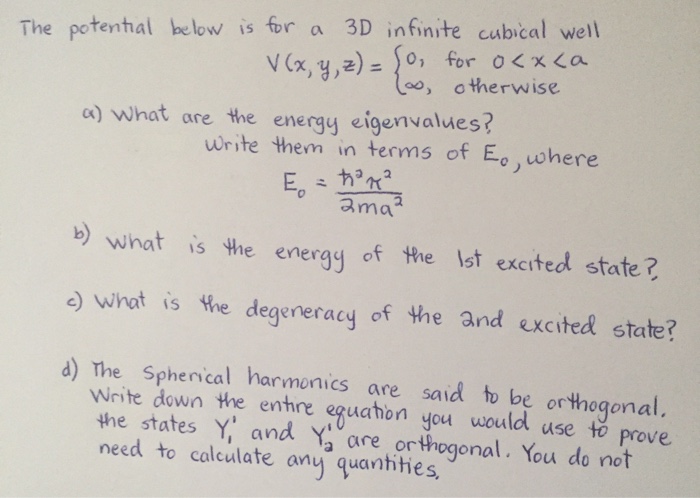 The potential below is for a 3D infinite cubical well
V(x,y,z) = {0, for 0<x<a
∞, otherwise
a) What are the energy eigenvalues?
Write them in terms of E₀, where
E₀ = ħ²π²
2ma²
b) what is the energy of the 1st excited state?
c) What is the degeneracy of the 2nd excited state?
d) The Spherical harmonics are said to be orthogonal.
Write down the entire equation you would use to prove
the states Y₁¹ and Y₂¹ are orthogonal. You do not
need to calculate any quantities.